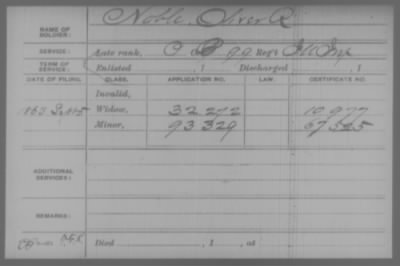 NAME OF SOLDIER: Noble, Oliver R
SERVICE: Late rank, C 99 Reg't Ill Inf
TERM OF SERVICE: Enlisted , 1 Discharged , 1
DATE OF FILING. CLASS. APPLICATION NO. LAW. CERTIFICATE NO.
Invalid,
1863 Widow, 32292 10977
Minor, 93329 67525
ADDITIONAL SERVICES:
REMARKS:
Died , 1 , at